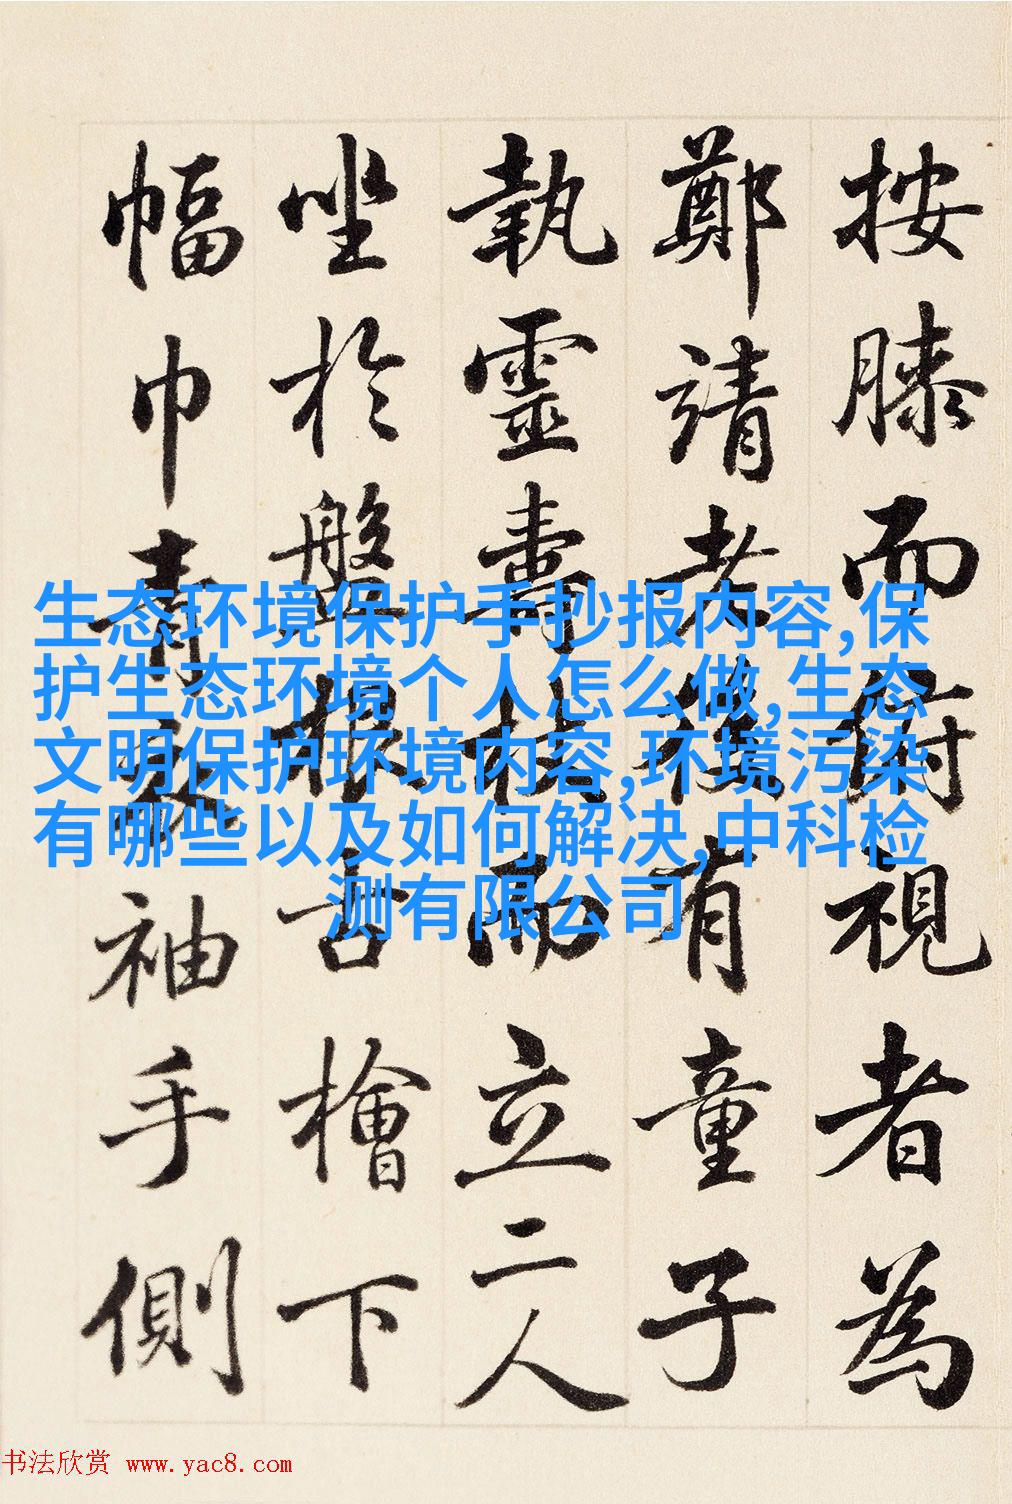 按膝而俯視者為
鄭靖老後有童子
執靈壽杖而立二人
坐於盤根古檜下
幅巾青衣袖手側
生态环境保护手抄报内容,保
护生态环境个人怎么做,生态
文明保护环境内容,环境污染
有哪些以及如何解决,中科检
测有限公司
书法欣赏 www.yac8.com